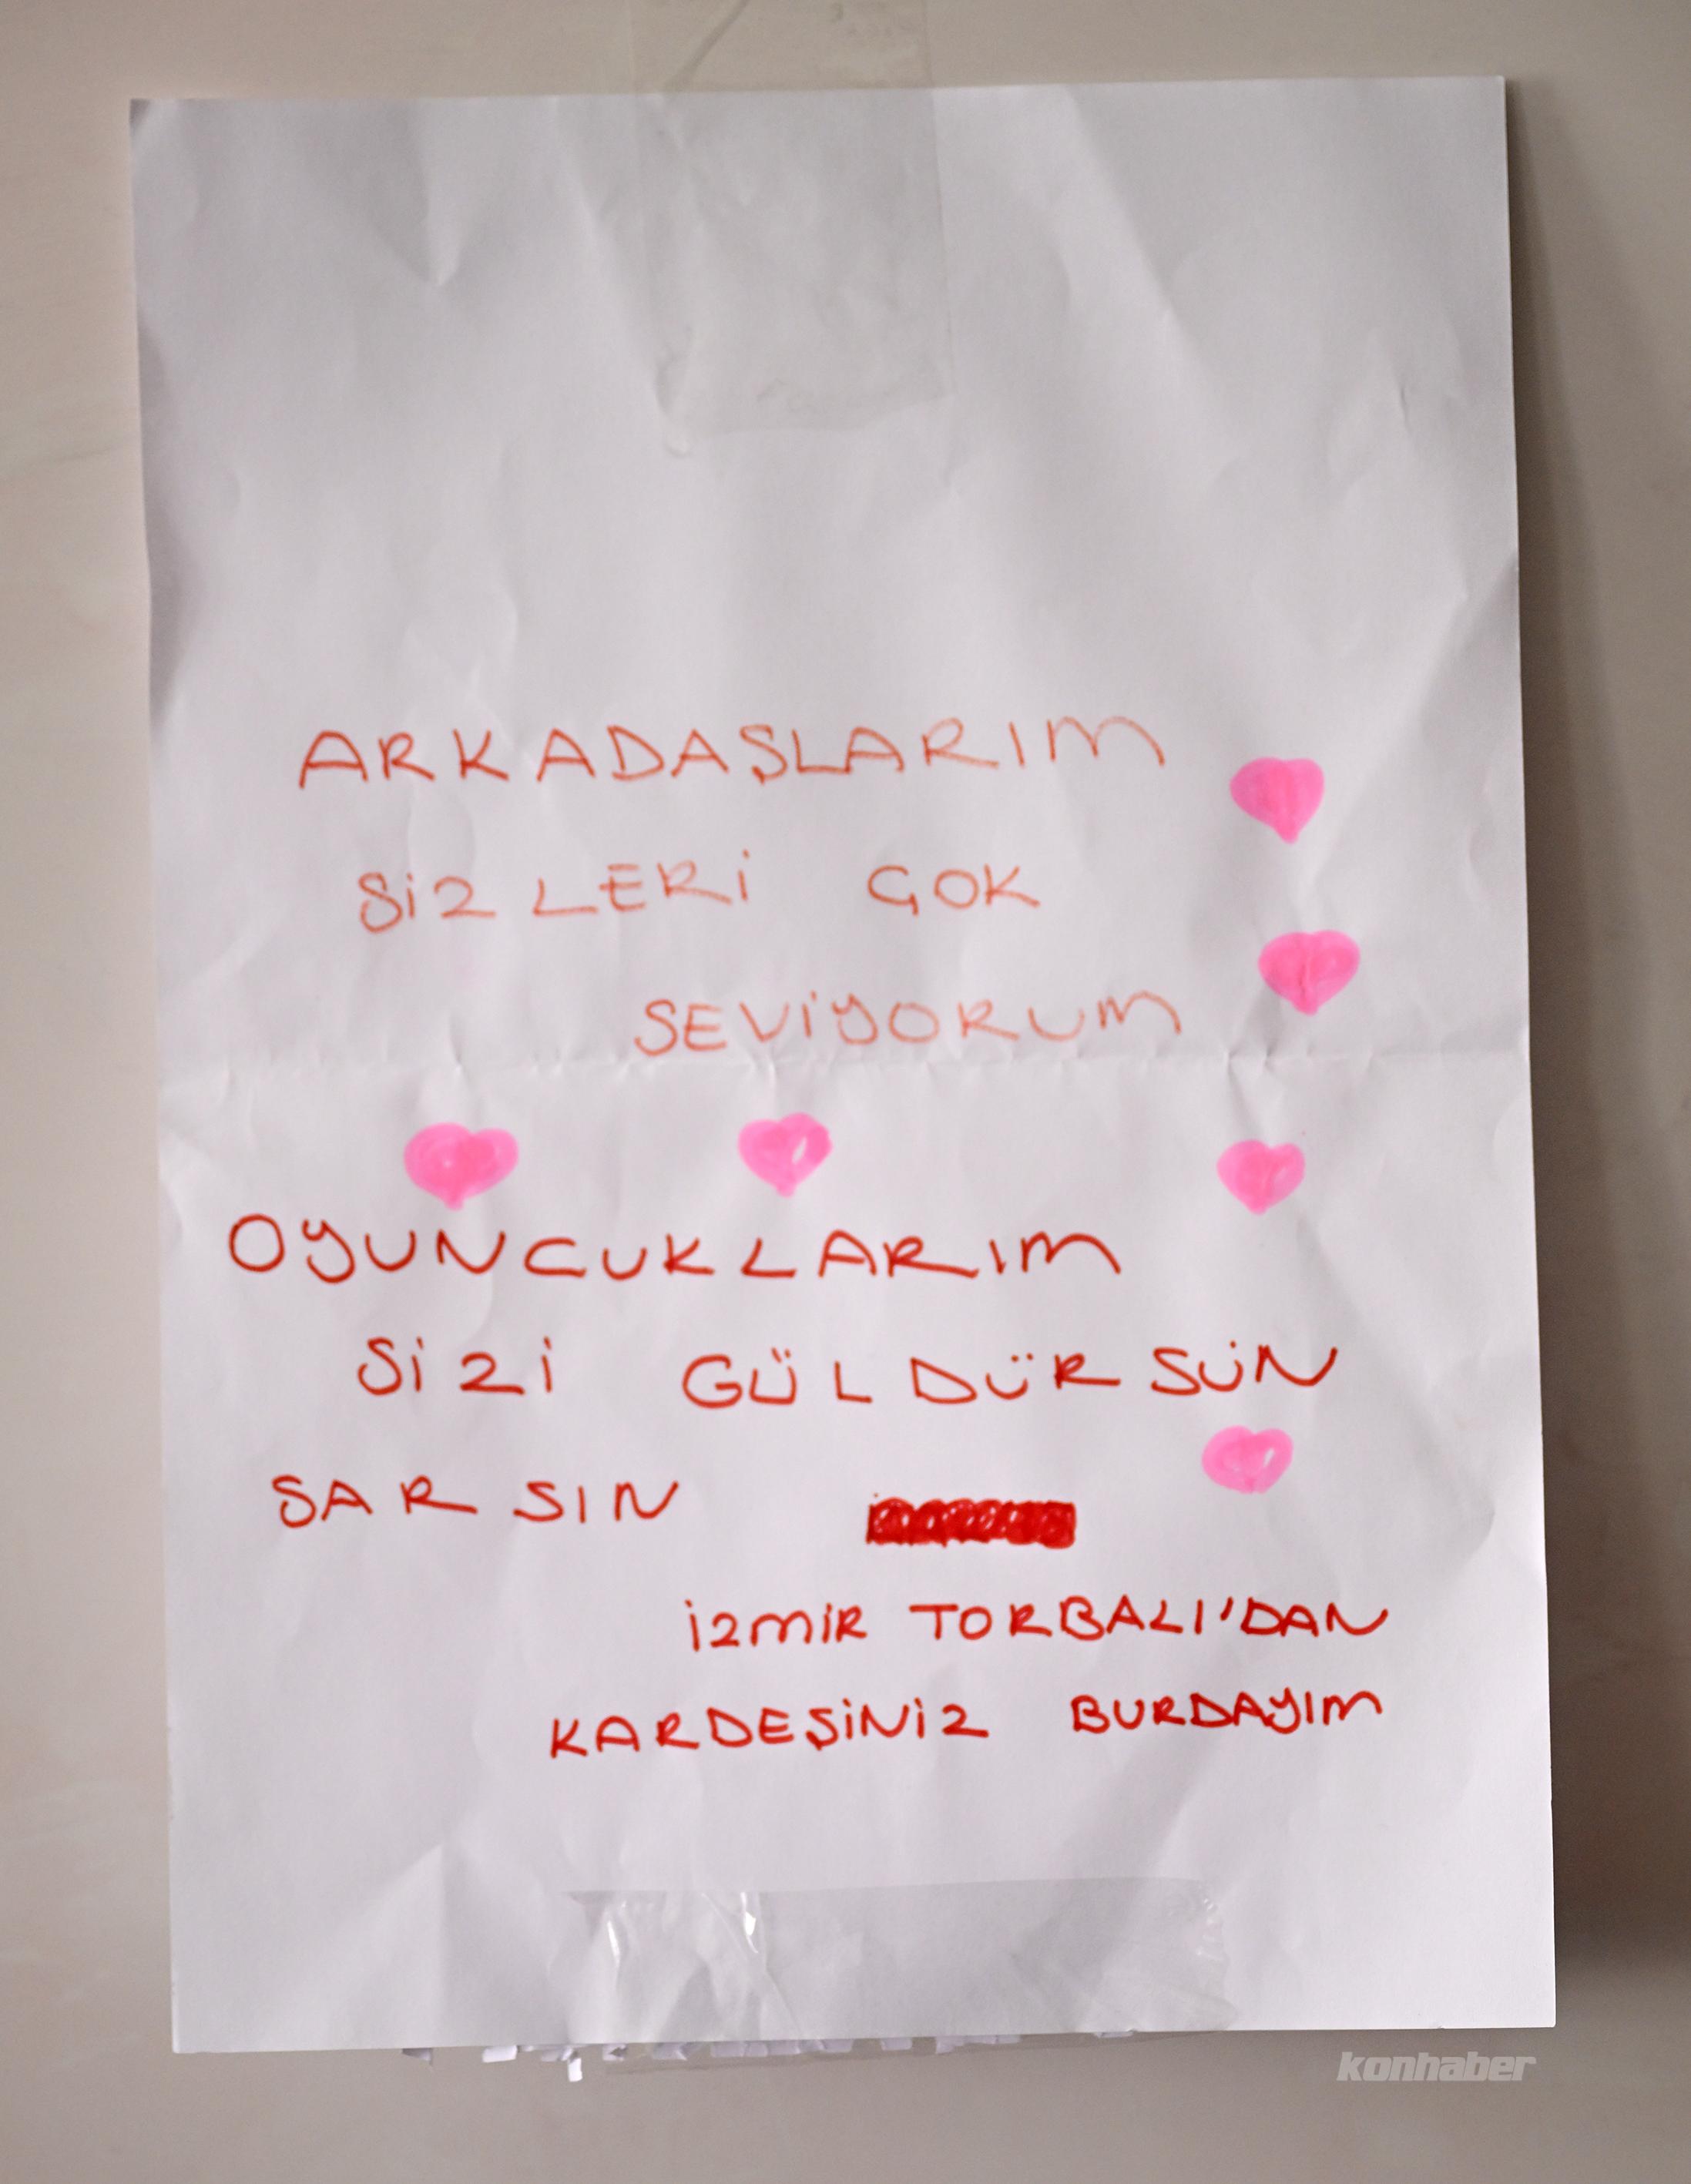 ARKADAŞLARIM
SİZLERİ ÇOK
SEVİYORUM
OYUNCUKLARIM
SİZİ GÜLDÜRSÜN
SARSIN
İZMİR TORBALI'DAN
KARDEŞİNİZ BURDAYIM
konhaber